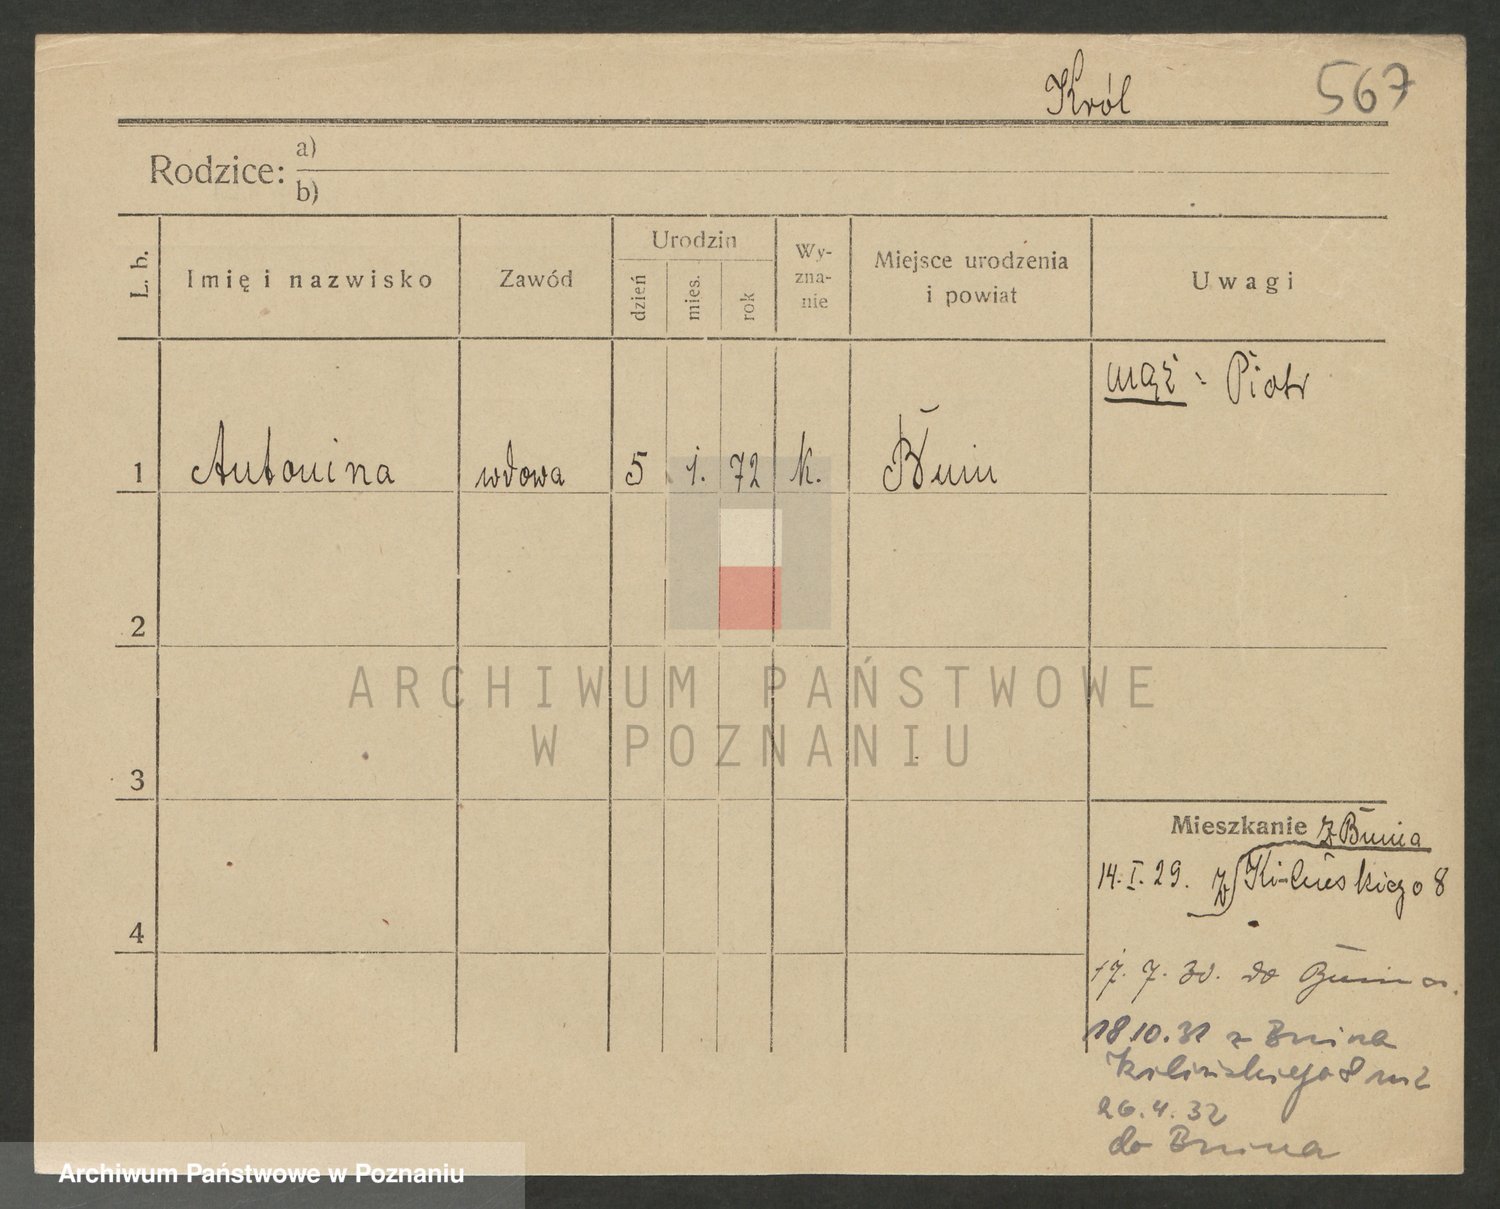 Król 567
Rodzice: a)
b)
L. b. Imię i nazwisko Zawód Urodzin dzień mies. rok Wy-zna-nie Miejsce urodzenia i powiat Uwagi
mąż: Piotr
1 Antonina wdowa 5 1. 72 k. Bnin
2
ARCHIWUM PAŃSTWOWE
W POZNANIU
3
Mieszkanie z Bnina
14. I. 29. Kilińskiego 8
4
17. 7. 30. do Bnina.
18 10. 31 z Bnina
Kilińskiego 8 m 2
26. 4. 32
do Bnina
Archiwum Państwowe w Poznaniu